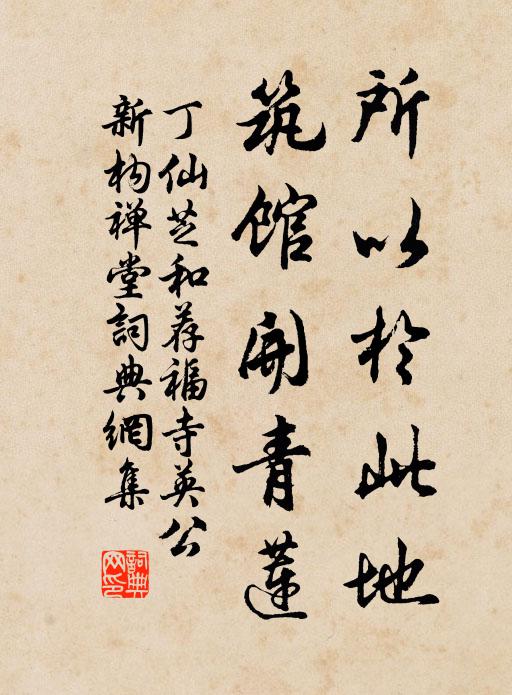 所以於此地
筑馆開青蓮
丁仙芝和荐福寺英公
新构禅堂詞典網集
詞典网印